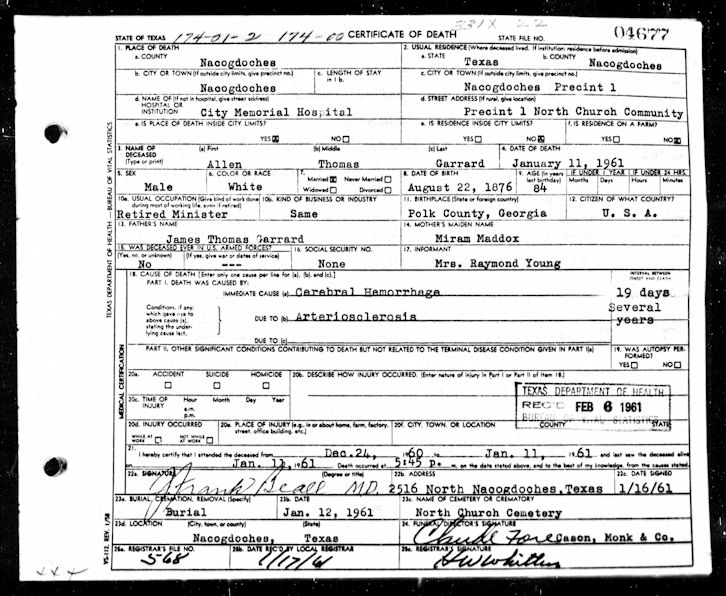 331X 22
STATE OF TEXAS 174-01-2 174-00 CERTIFICATE OF DEATH STATE FILE NO. 04677
1. PLACE OF DEATH 2. USUAL RESIDENCE (Where deceased lived. If institution: residence before admission)
a. COUNTY a. STATE b. COUNTY
Nacogdoches Texas Nacogdoches
b. CITY OR TOWN (If outside city limits, give precinct no.) c. LENGTH OF STAY in 1 b. c. CITY OR TOWN (If outside city limits, give precinct no.)
Nacogdoches Nacogdoches Precint 1
d. NAME OF (If not in hospital, give street address) HOSPITAL OR INSTITUTION d. STREET ADDRESS (If rural, give location)
City Memorial Hospital Precint 1 North Church Community
e. IS PLACE OF DEATH INSIDE CITY LIMITS? e. IS RESIDENCE INSIDE CITY LIMITS? f. IS RESIDENCE ON A FARM?
YES NO YES NO YES NO
3. NAME OF DECEASED (Type or print) (a) First (b) Middle (c) Last 4. DATE OF DEATH
Allen Thomas Garrard January 11, 1961
5. SEX 6. COLOR OR RACE 7. Married Never Married Widowed Divorced 8. DATE OF BIRTH 9. AGE (In years last birthday) IF UNDER 1 YEAR IF UNDER 24 HRS.
Months Days Hours Minutes
Male White August 22, 1876 84
10a. USUAL OCCUPATION (Give kind of work done during most of working life, even if retired) 10b. KIND OF BUSINESS OR INDUSTRY 11. BIRTHPLACE (State or foreign country) 12. CITIZEN OF WHAT COUNTRY?
Retired Minister Same Polk County, Georgia U. S. A.
13. FATHER'S NAME 14. MOTHER'S MAIDEN NAME
James Thomas Garrard Miram Maddox
15. WAS DECEASED EVER IN U.S. ARMED FORCES? 16. SOCIAL SECURITY NO. 17. INFORMANT
(Yes, no, or unknown) (If yes, give war or dates of service)
No --- None Mrs. Raymond Young
18. CAUSE OF DEATH [Enter only one cause per line for (a), (b), and (c).] INTERVAL BETWEEN ONSET AND DEATH
PART I. DEATH WAS CAUSED BY:
IMMEDIATE CAUSE (a) Cerebral Hemorrhage 19 days
Conditions, if any, which gave rise to above cause (a), stating the underlying cause last.
DUE TO (b) Arteriosclerosis Several years
DUE TO (c)
PART II. OTHER SIGNIFICANT CONDITIONS CONTRIBUTING TO DEATH BUT NOT RELATED TO THE TERMINAL DISEASE CONDITION GIVEN IN PART I(a) 19. WAS AUTOPSY PERFORMED?
YES NO
20a. ACCIDENT SUICIDE HOMICIDE 20b. DESCRIBE HOW INJURY OCCURRED. (Enter nature of injury in Part I or Part II of item 18.)
20c. TIME OF INJURY Hour Month Day Year
a.m.
p.m.
TEXAS DEPARTMENT OF HEALTH
REC'D FEB 6 1961
BUREAU OF VITAL STATISTICS
20d. INJURY OCCURRED 20e. PLACE OF INJURY (e.g., in or about home, farm, factory, street, office building, etc.) 20f. CITY, TOWN, OR LOCATION COUNTY STATE
WHILE AT WORK NOT WHILE AT WORK
21. I hereby certify that I attended the deceased from Dec. 24, 1960 to Jan. 11, 1961 and last saw the deceased alive
on Jan. 11, 1961 Death occurred at 5:45 p. m. on the date stated above, and to the best of my knowledge, from the causes stated.
22a. SIGNATURE (Degree or title) 22b. ADDRESS 22c. DATE SIGNED
J Frank Beall M.D. 2516 North Nacogdoches, Texas 1/16/61
23a. BURIAL, CREMATION, REMOVAL (Specify) 23b. DATE 23c. NAME OF CEMETERY OR CREMATORY
Burial Jan. 12, 1961 North Church Cemetery
23d. LOCATION (City, town, or county) (State) 24. FUNERAL DIRECTOR'S SIGNATURE
Nacogdoches, Texas Claude Fore Cason, Monk & Co.
25a. REGISTRAR'S FILE NO. 25b. DATE REC'D BY LOCAL REGISTRAR 25c. REGISTRAR'S SIGNATURE
568 1/17/61
TEXAS DEPARTMENT OF HEALTH — BUREAU OF VITAL STATISTICS
MEDICAL CERTIFICATION
VS-112, REV. 1/58
xxx